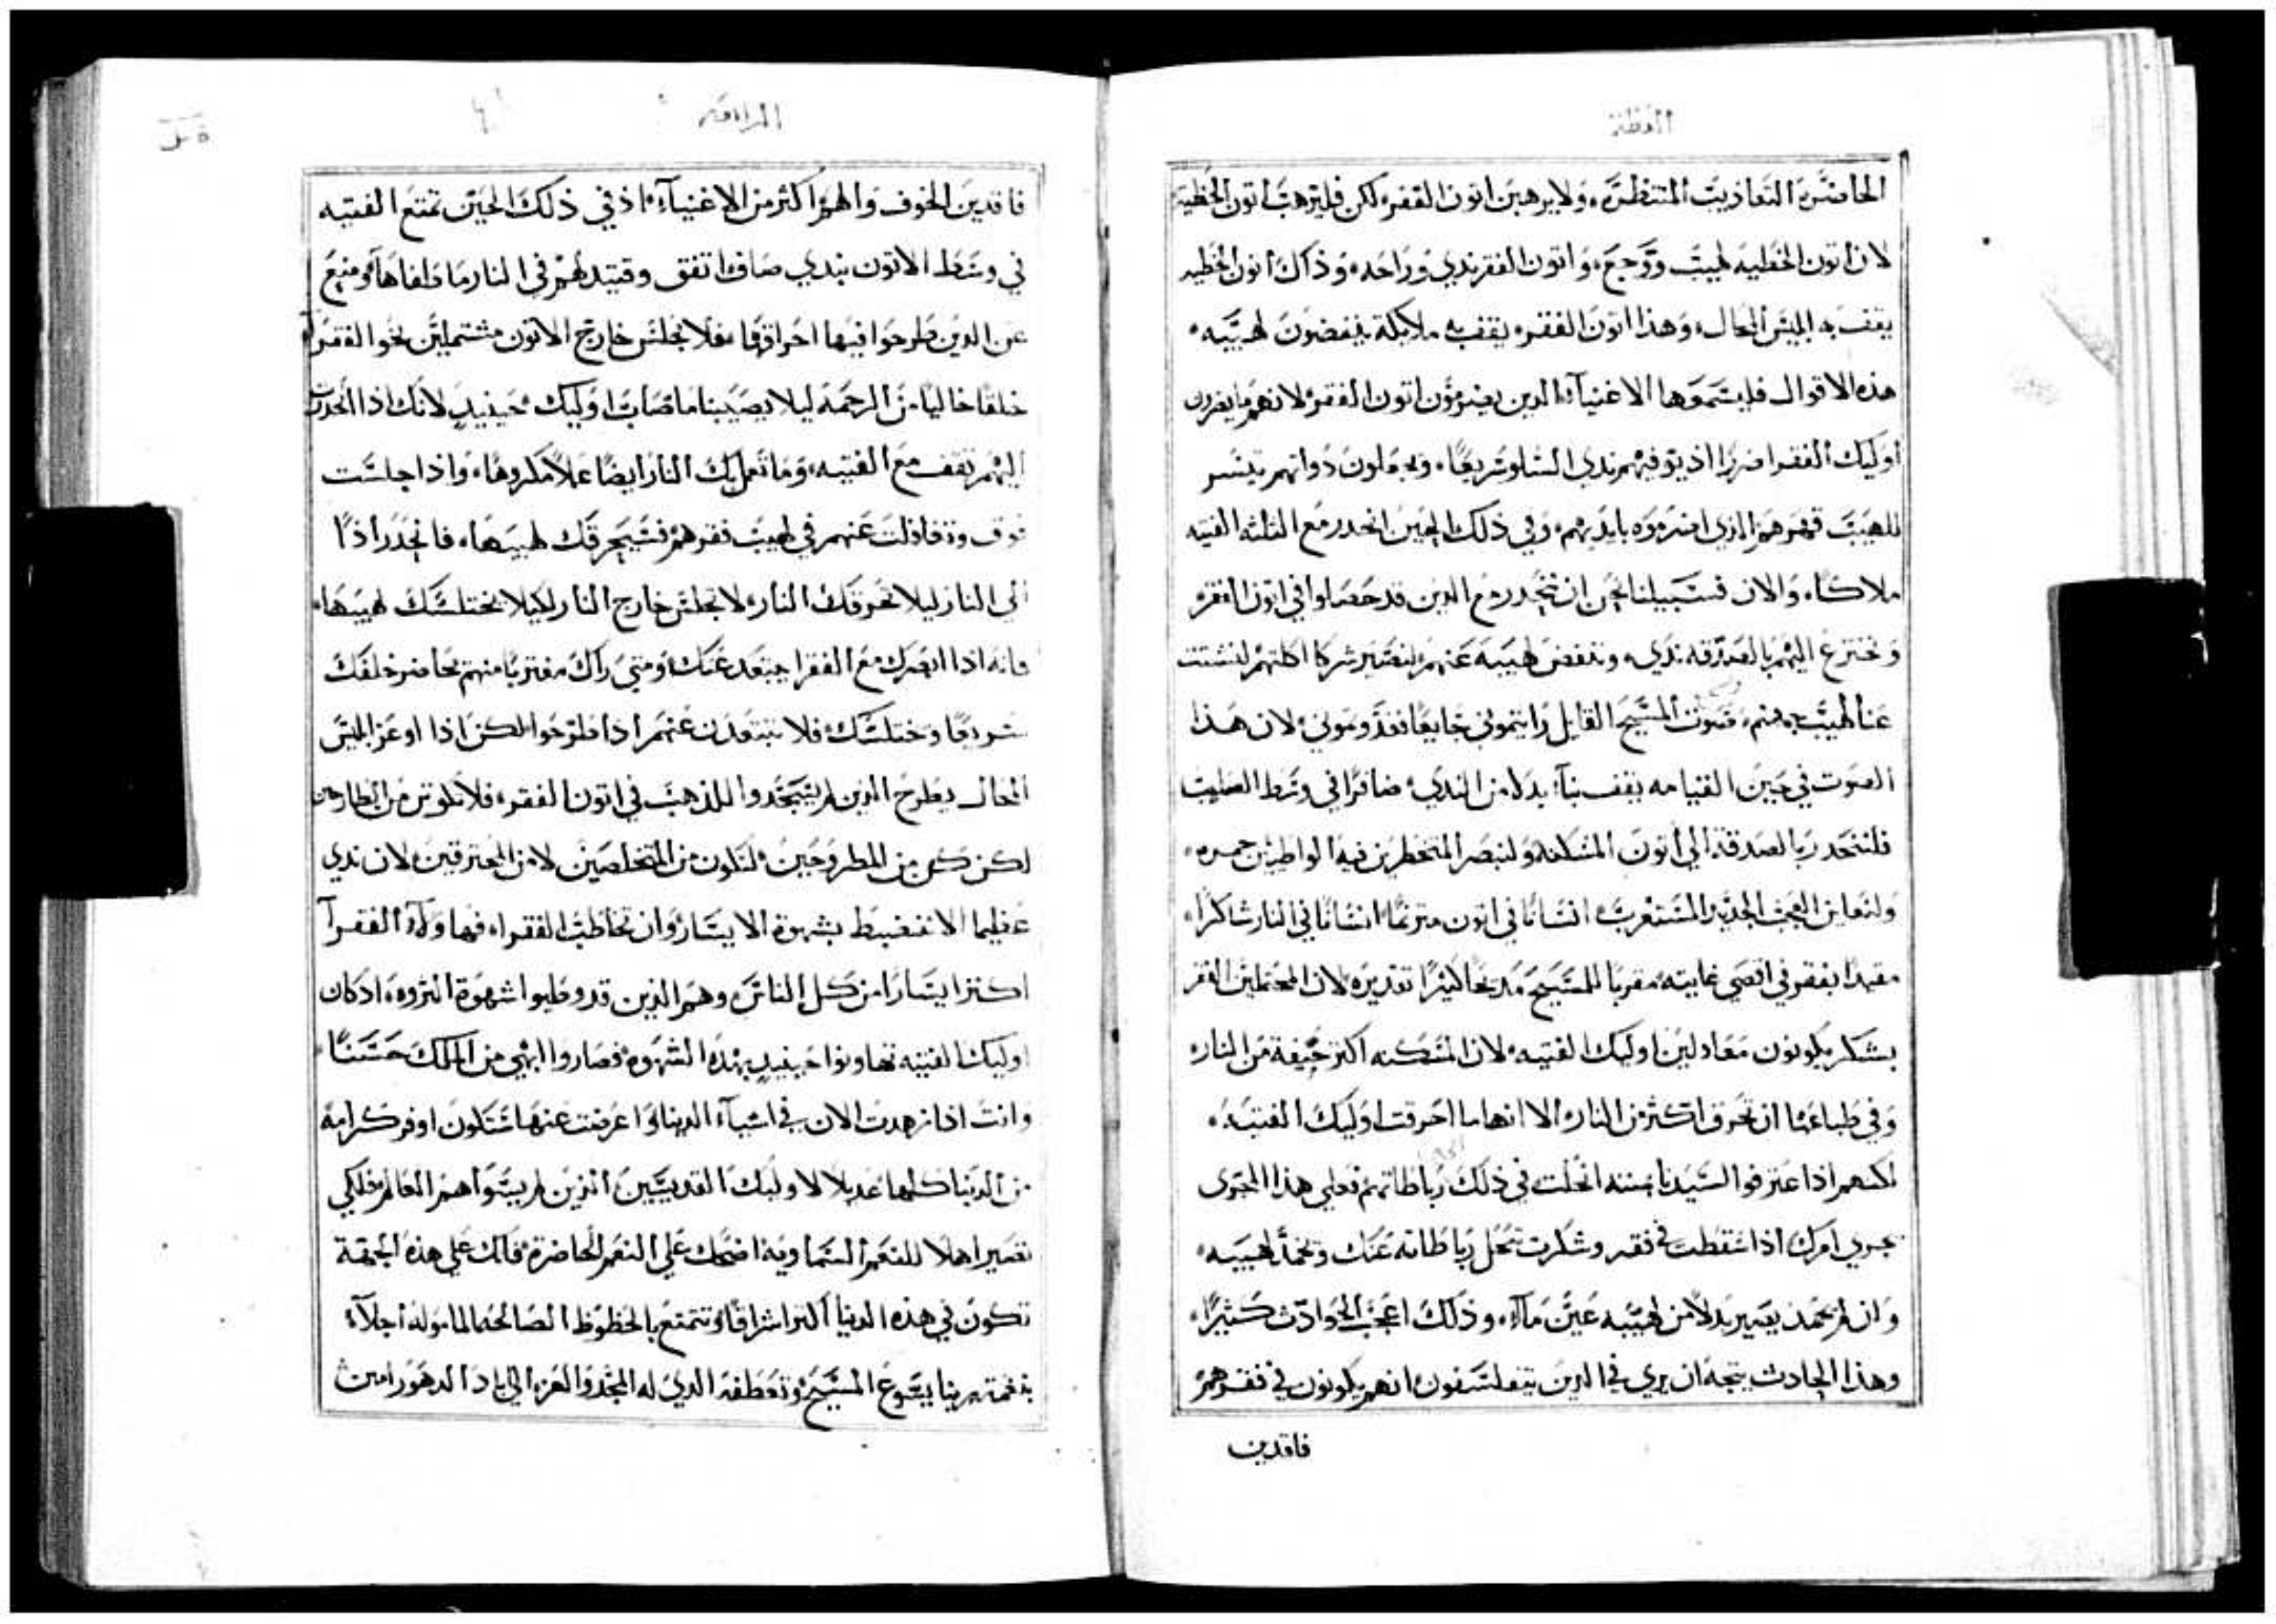 العظة
الحاضره التعاذيب المنتظره ولا يرهبن اتون الفقر لكن فليرهب اتون الخطيه
لان اتون الخطيه لهيب ووجع واتون الفقر ندي وراحه وذاك اتون الخطيه
يقف به ابليس المحال وهذا اتون الفقر يقف به ملايكة ينفضون لهيبه
هذه الاقوال فليسمعوها الاغنيآ الدين يضرمون اتون الفقر لانهم ما يضرون
اوليك الفقرا ضررا اذ يوفيهم ندي السما سريعا ويجعلون ذواتهم تيسر
للهيب قهرهم الذي اضرموه بايديهم وفي ذلك الحين انحدر مع الثلثه الفتيه
ملاكا والان فسبيلنا نحن ان ننحدر مع الدين قد حصلوا في اتون الفقر
ونخترع اليهم بالصدقه ندي وننفض لهيبه عنهم لنصير شركا اكلتهم لنشتت
عنا لهيب جهنم صوت المسيح القايل رايتموني جايعا فغذوتموني لان هذا
الصوت في حين القيامه يقف بنا بدلا من الندي صافرا في وسط اللهيب
فلننحدر بالصدقة الي اتون المسكنه ولنبصر المتخطرين فيه الواطيين جمره
ولنعاين العجب الجديد المستغرب انسانا في اتون مترنما انسانا في النار شاكرا
مقيدا بفقر في اقصي غايته مقربا للمسيح مديحا كثيرا تقديره لان المحتملين الفقر
بشكر يكونون معادلين اوليك الفتيه لان المسكنه اكثر خيفة من النار
وفي طباعها ان تحرق اكثر من النار الا انها ما احرقت اوليك الفتيه
لكنهم اذ اعترفوا السيد بمنته انحلت في ذلك رباطاتهم فعلي هذا المجري
يجري امرك اذا سقطت في فقر وشكرت تنحل رباطاته عنك وتخمد لهيبه
وان لم تخمد يصير بدلا من لهيبه عين مآء وذلك اعجب الحوادث كثيرا
وهذا الحادث يتجه ان يري في الدين يتفلسفون انهم يكونون في فقرهم
فاقدين
الرابعه
فاقدين الخوف والهم اكثر من الاغنيآء اذ في ذلك الحين تمتع الفتيه
في وسط الاتون بندي صاف اتفق وقتيد لهم في النار ما اطفاها ومنع
عن الدين طرحوا فيها احراقها فلا نجلس خارج الاتون مشتملين نحو الفقرا
خلقا خاليا من الرحمه ليلا يصيبنا ما اصاب اوليك حينيد لانك اذا انحدرت
اليهم تقف مع الفتيه وما تعمل بك النار ايضا عملا مكروها واذا جلست
فوق وتغافلت عنهم في لهيب فقرهم فسيحرقك لهيبها فانحدر اذا
الي النار ليلا تحرقك النار لا تجلس خارج النار لكيلا يختلسك لهيبها
فانه اذا ابصرك مع الفقرا يبتعد عنك ومتي راك مغتربا منهم يحاضر خلفك
سريعا ويختلسك فلا تبتعدن عنهم اذا طرحوا لكن اذا اوعز ابليس
المحال بطرح الدين لم يسجدوا للذهب في اتون الفقر فلا تكونن من الطارحين
لكن كن من المطروحين لتكون من المتخلصين لا من المحترقين لان ندي
عظيما الا تنضبط بشهوة الايسار وان تخاطب الفقراء فهاولآء الفقرآ
اكثر ايسارا من كل الناس وهم الذين قد وطيوا شهوة الثروه اذ كان
اوليك الفتيه تهاونوا حينيد بهذه الشهوه فصاروا ابهي من الملك حسنا
وانت اذا زهدت الان في اشيآء الدنيا واعرضت عنها ستكون اوفر كرامة
من الدنيا كلها عديلا لاوليك القديسين الذين لم يسواهم العالم فلكي
تصير اهلا للنعم السماويه اضحك علي النعم الحاضرة فانك علي هذه الجهة
تكون في هذه الدنيا اكثر اشراقا وتتمتع بالحظوظ الصالحه المامولة اجلآء
بنعمة ربنا يسوع المسيح وتعطفه الدي له المجد والعز الي اباد الدهور امين